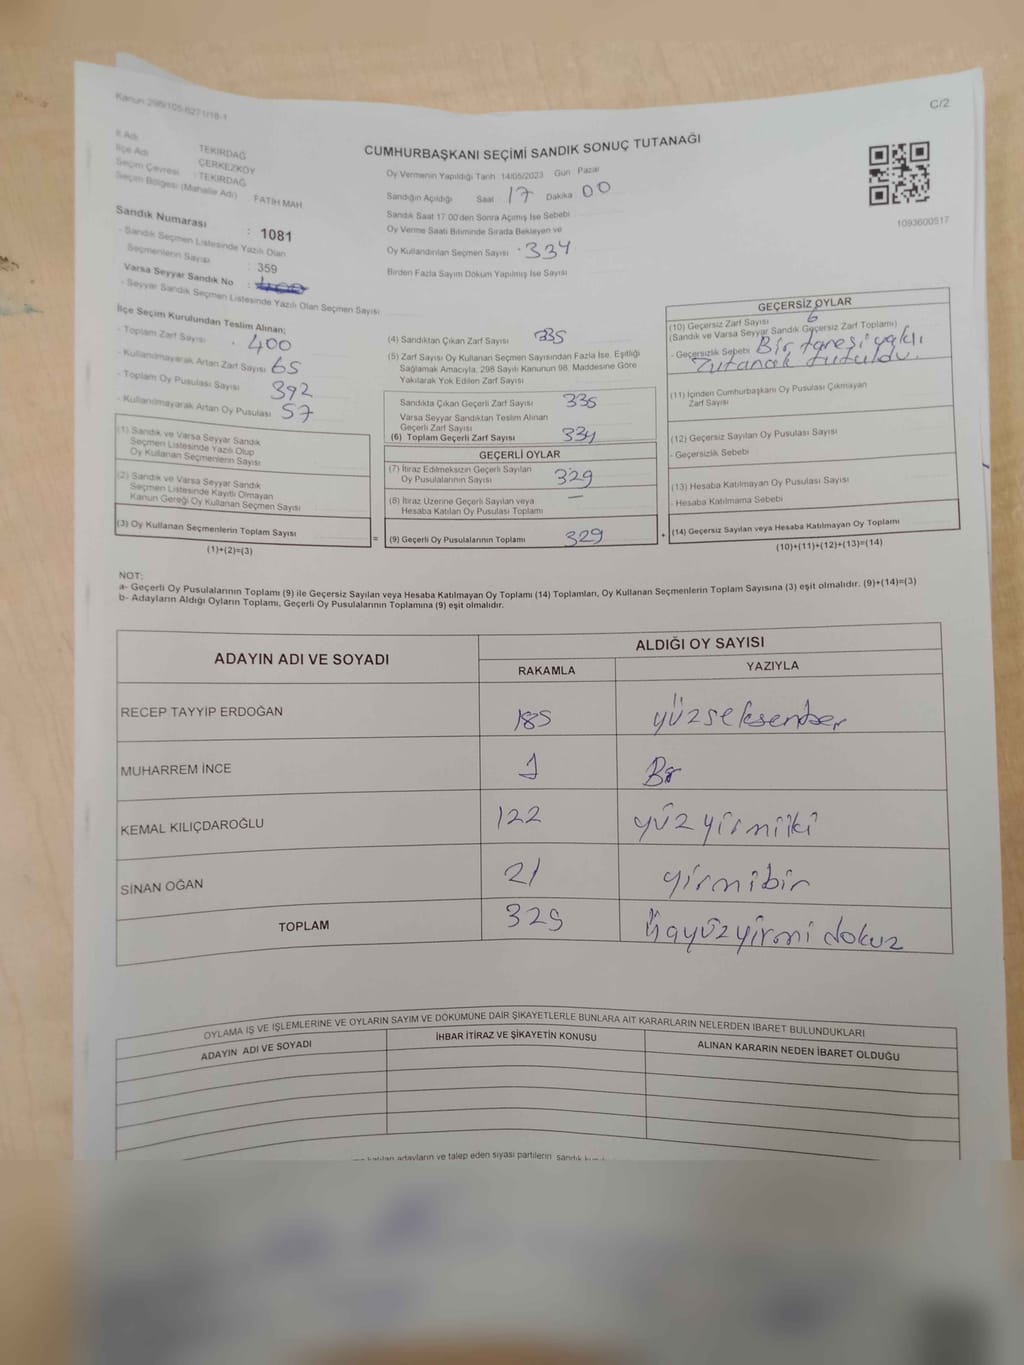 Kanun 298/105-6271/18-1
C/2
CUMHURBAŞKANI SEÇİMİ SANDIK SONUÇ TUTANAĞI
İl Adı TEKİRDAĞ
İlçe Adı ÇERKEZKÖY
Seçim Çevresi : TEKİRDAĞ
Seçim Bölgesi (Mahalle Adı) FATİH MAH
Sandık Numarası : 1081
- Sandık Seçmen Listesinde Yazılı Olan
Seçmenlerin Sayısı : 359
Varsa Seyyar Sandık No :
- Seyyar Sandık Seçmen Listesinde Yazılı Olan Seçmen Sayısı
Oy Vermenin Yapıldığı Tarih 14/05/2023 Gün Pazar
Sandığın Açıldığı Saat 17 Dakika 00
Sandık Saat 17.00'den Sonra Açılmış İse Sebebi
Oy Verme Saati Bitiminde Sırada Bekleyen ve
Oy Kullandırılan Seçmen Sayısı 334
Birden Fazla Sayım Döküm Yapılmış İse Sayısı
1093600517
İlçe Seçim Kurulundan Teslim Alınan;
- Toplam Zarf Sayısı 400
- Kullanılmayarak Artan Zarf Sayısı 65
- Toplam Oy Pusulası Sayısı 392
- Kullanılmayarak Artan Oy Pusulası 57
(1) Sandık ve Varsa Seyyar Sandık
Seçmen Listesinde Yazılı Olup
Oy Kullanan Seçmenlerin Sayısı
(2) Sandık ve Varsa Seyyar Sandık
Seçmen Listesinde Kayıtlı Olmayan
Kanun Gereği Oy Kullanan Seçmen Sayısı
(3) Oy Kullanan Seçmenlerin Toplam Sayısı
(1)+(2)=(3)
=
(4) Sandıktan Çıkan Zarf Sayısı 335
(5) Zarf Sayısı Oy Kullanan Seçmen Sayısından Fazla İse, Eşitliği
Sağlamak Amacıyla, 298 Sayılı Kanunun 98. Maddesine Göre
Yakılarak Yok Edilen Zarf Sayısı
Sandıkta Çıkan Geçerli Zarf Sayısı 335
Varsa Seyyar Sandıktan Teslim Alınan
Geçerli Zarf Sayısı
(6) Toplam Geçerli Zarf Sayısı 334
GEÇERLİ OYLAR
(7) İtiraz Edilmeksizin Geçerli Sayılan
Oy Pusulalarının Sayısı 329
(8) İtiraz Üzerine Geçerli Sayılan veya
Hesaba Katılan Oy Pusulası Toplamı —
(9) Geçerli Oy Pusulalarının Toplamı 329
+
GEÇERSİZ OYLAR
(10) Geçersiz Zarf Sayısı 6
(Sandık ve Varsa Seyyar Sandık Geçersiz Zarf Toplamı)
- Geçersizlik Sebebi Bir tanesi yaklı
Tutanak tutuldu.
(11) İçinden Cumhurbaşkanı Oy Pusulası Çıkmayan
Zarf Sayısı
(12) Geçersiz Sayılan Oy Pusulası Sayısı
- Geçersizlik Sebebi
(13) Hesaba Katılmayan Oy Pusulası Sayısı
- Hesaba Katılmama Sebebi
(14) Geçersiz Sayılan veya Hesaba Katılmayan Oy Toplamı
(10)+(11)+(12)+(13)=(14)
NOT:
a- Geçerli Oy Pusulalarının Toplamı (9) ile Geçersiz Sayılan veya Hesaba Katılmayan Oy Toplamı (14) Toplamları, Oy Kullanan Seçmenlerin Toplam Sayısına (3) eşit olmalıdır. (9)+(14)=(3)
b- Adayların Aldığı Oyların Toplamı, Geçerli Oy Pusulalarının Toplamına (9) eşit olmalıdır.
ADAYIN ADI VE SOYADI
ALDIĞI OY SAYISI
RAKAMLA YAZIYLA
RECEP TAYYİP ERDOĞAN 185 yüzseksenbeş
MUHARREM İNCE 1 Bir
KEMAL KILIÇDAROĞLU 122 yüzyirmiiki
SİNAN OĞAN 21 yirmibir
TOPLAM 329 üçyüzyirmi dokuz
OYLAMA İŞ VE İŞLEMLERİNE VE OYLARIN SAYIM VE DÖKÜMÜNE DAİR ŞİKAYETLERLE BUNLARA AİT KARARLARIN NELERDEN İBARET BULUNDUKLARI
ADAYIN ADI VE SOYADI İHBAR İTİRAZ VE ŞİKAYETİN KONUSU ALINAN KARARIN NEDEN İBARET OLDUĞU
katılan adayların ve talep eden siyasi partilerin sandık